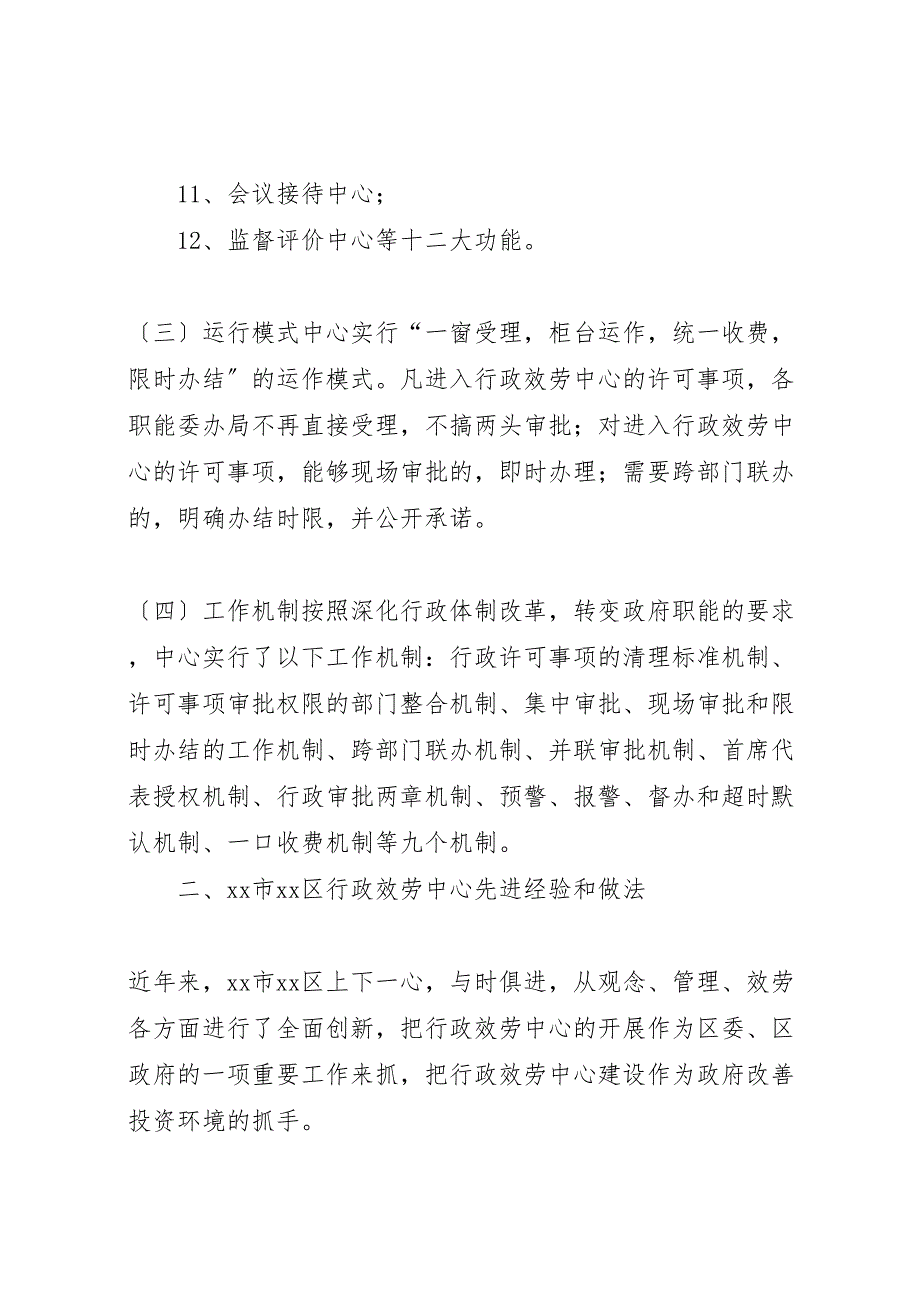 11、会议接待中心；
12、监督评价中心等十二大功能。
〔三〕运行模式中心实行“一窗受理，柜台运作，统一收费，
限时办结〞的运作模式。凡进入行政效劳中心的许可事项，各
职能委办局不再直接受理，不搞两头审批；对进入行政效劳中
心的许可事项，能够现场审批的，即时办理；需要跨部门联办
的，明确办结时限，并公开承诺。
〔四〕工作机制按照深化行政体制改革，转变政府职能的要求
，中心实行了以下工作机制：行政许可事项的清理标准机制、
许可事项审批权限的部门整合机制、集中审批、现场审批和限
时办结的工作机制、跨部门联办机制、并联审批机制、首席代
表授权机制、行政审批两章机制、预警、报警、督办和超时默
认机制、一口收费机制等九个机制。
二、xx市xx区行政效劳中心先进经验和做法
近年来，xx市xx区上下一心，与时俱进，从观念、管理、效劳
各方面进行了全面创新，把行政效劳中心的开展作为区委、区
政府的一项重要工作来抓，把行政效劳中心建设作为政府改善
投资环境的抓手。